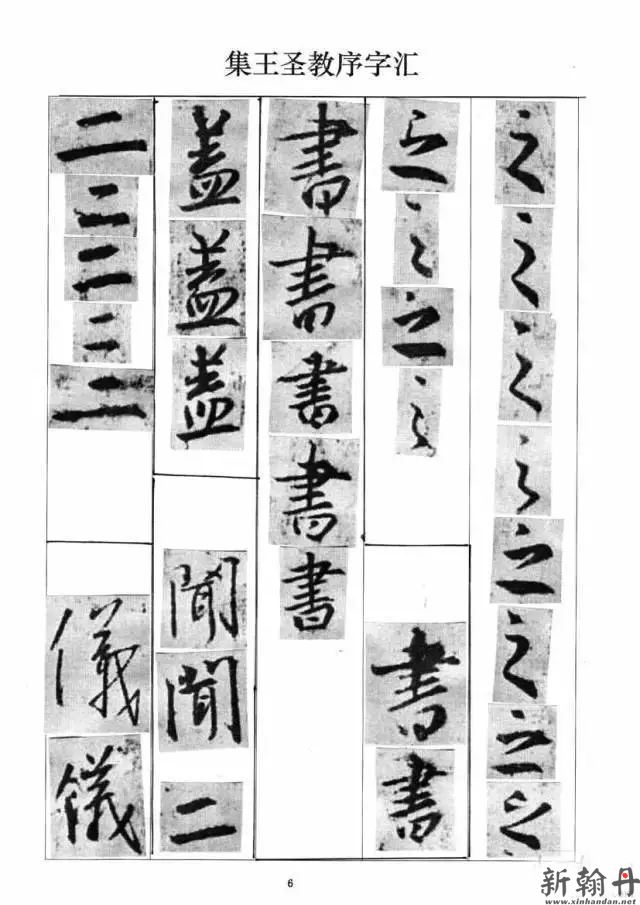 集王圣教序字汇
之之之之之之之之
之之之之書書
書書書書書
蓋蓋蓋聞聞二
二二二二二儀儀
6
新翰丹
www.xinhandan.net